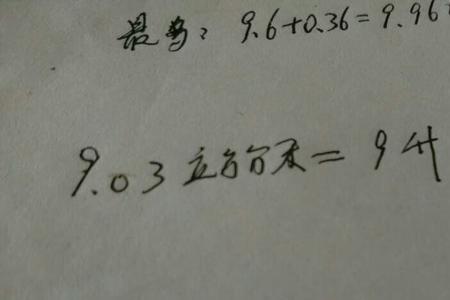 最多: 9.6+0.36=9.96
9.03立方分米=9升